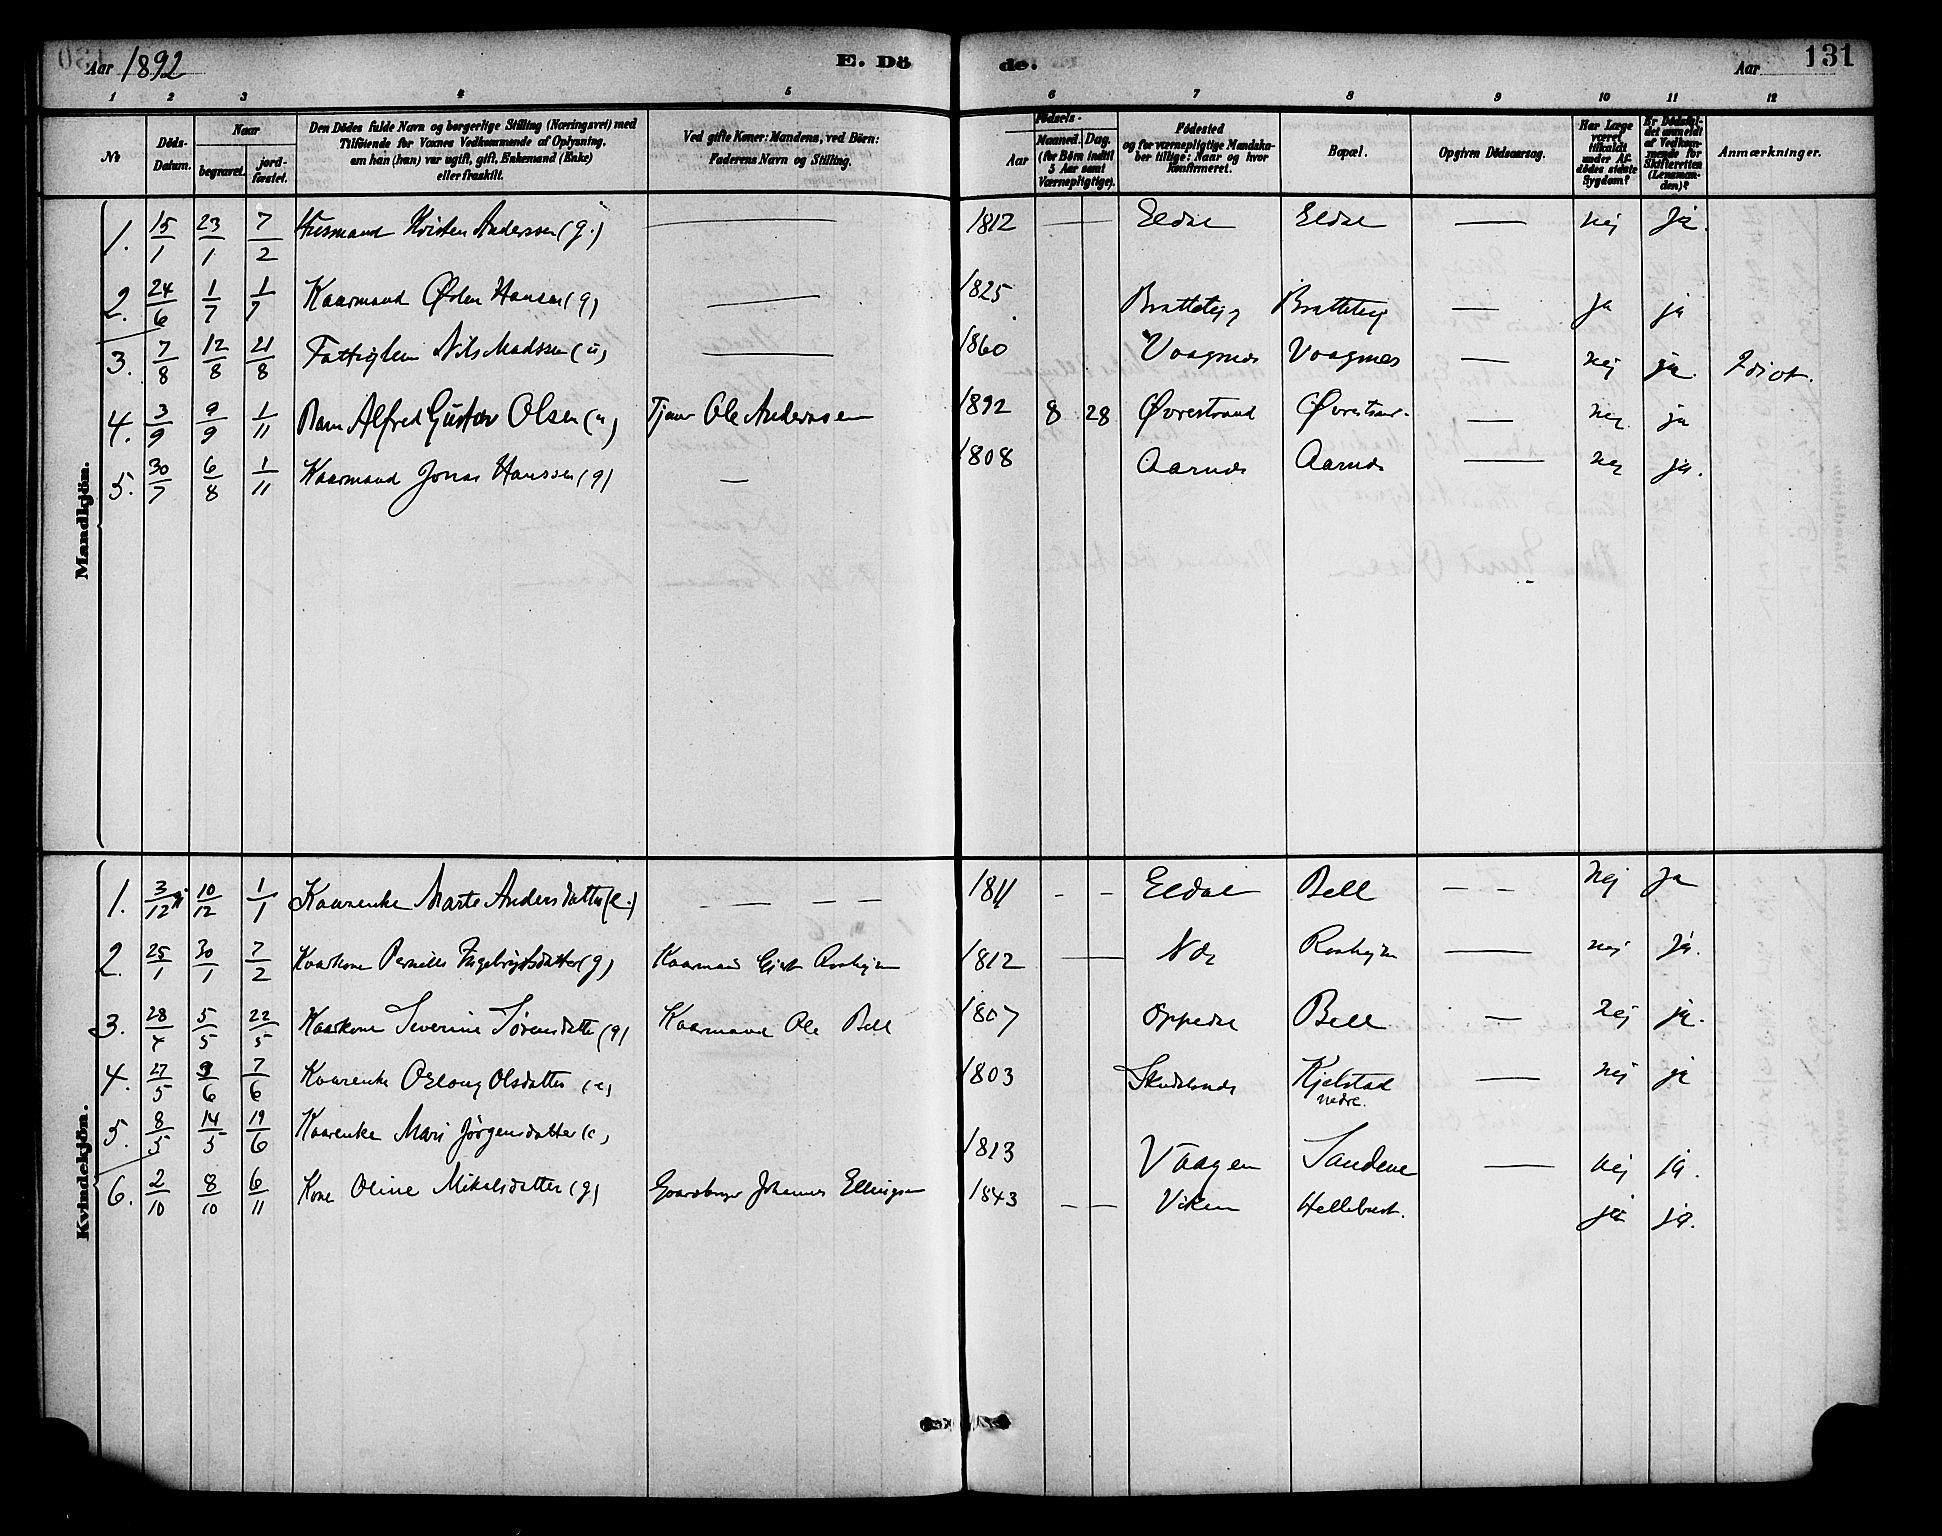 Aar 1892 E. Dö de. Aar 131
1 2 3 4 5 6 7 8 9 10 11 12
№ Döds-Datum. Naar begravet. jordfæstet. Den Dödes fulde Navn og borgerlige Stilling (Næringsvei) med Tilföiende for Voxnes Vedkommende af Oplysning, om han (hun) var ugift, gift, Enkemand (Enke) eller fraskilt. Ved gifte Koner: Mandens, ved Börn: Faderens Navn og Stilling. Födsels- Aar Maaned. Dag. (for Börn indtil 5 Aar samt Værnepligtige). Födested og for værnepligtige Mandskaber tillige: Naar og hvor konfirmeret. Bopæl. Opgiven Dödsaarsag. Har Læge været tilkaldt under Afdödes sidste Sygdom? Er Dödsfaldet anmeldt af Vedkommende for Skifteretten (Lensmanden)? Anmærkninger.
Mandkjön.
1. 15/1 23/1 7/2 Husmand Kristen Anderssen (g.) — 1812 — Eldal Eldal — nej Ja.
2. 24/6 1/7 1/7 Kaarmand Østen Hansen (g) — 1825 Bratteteig Bratteteig — ja ja
3. 7/8 12/8 21/8 Fattiglem Nils Madssen (u) — 1860 Vaagnes Vaagnes — nej ja Idiot.
4. 3/9 9/9 1/11 Barn Alfred Gustav Olsen (u) Tjener Ole Anderssen 1892 8 28 Øvrestrand — nej ja
5. 30/7 6/8 1/11 Kaarmand Jonas Hanssen (g) — 1808 Aarnes Aarnes — nej ja.
Kvindekjön.
1. 3/12 10/12 1/1 Kaarenke Marte Andersdatter (e.) — — — — 1811 - - Eldal Bell — — Nej Ja
2. 25/1 30/1 7/2 Kaarkone Pernille Ingebrigtsdatter (g) Kaarmand 1812 — — nej Ja.
3. 28/4 5/5 22/5 Kaarkone Severine Sørensdatter (g) Kaarmand Ole Bell 1807 Oppedal Bell — Nej ja.
4. 27/5 3/6 7/6 Kaarenke Olsdatter (e) 1803 Kjelstad nedre. — nej ja
5. 8/5 14/5 19/6 Kaarenke Mari Jørgensdatter (e) 1813 Vaagen Sandene — Nej ja.
6. 2/10 8/10 6/11 Kone Oline Mikalsdatter (g) Gaardbruger Johannes Ellingsen 1843 - - Viken — ja ja.